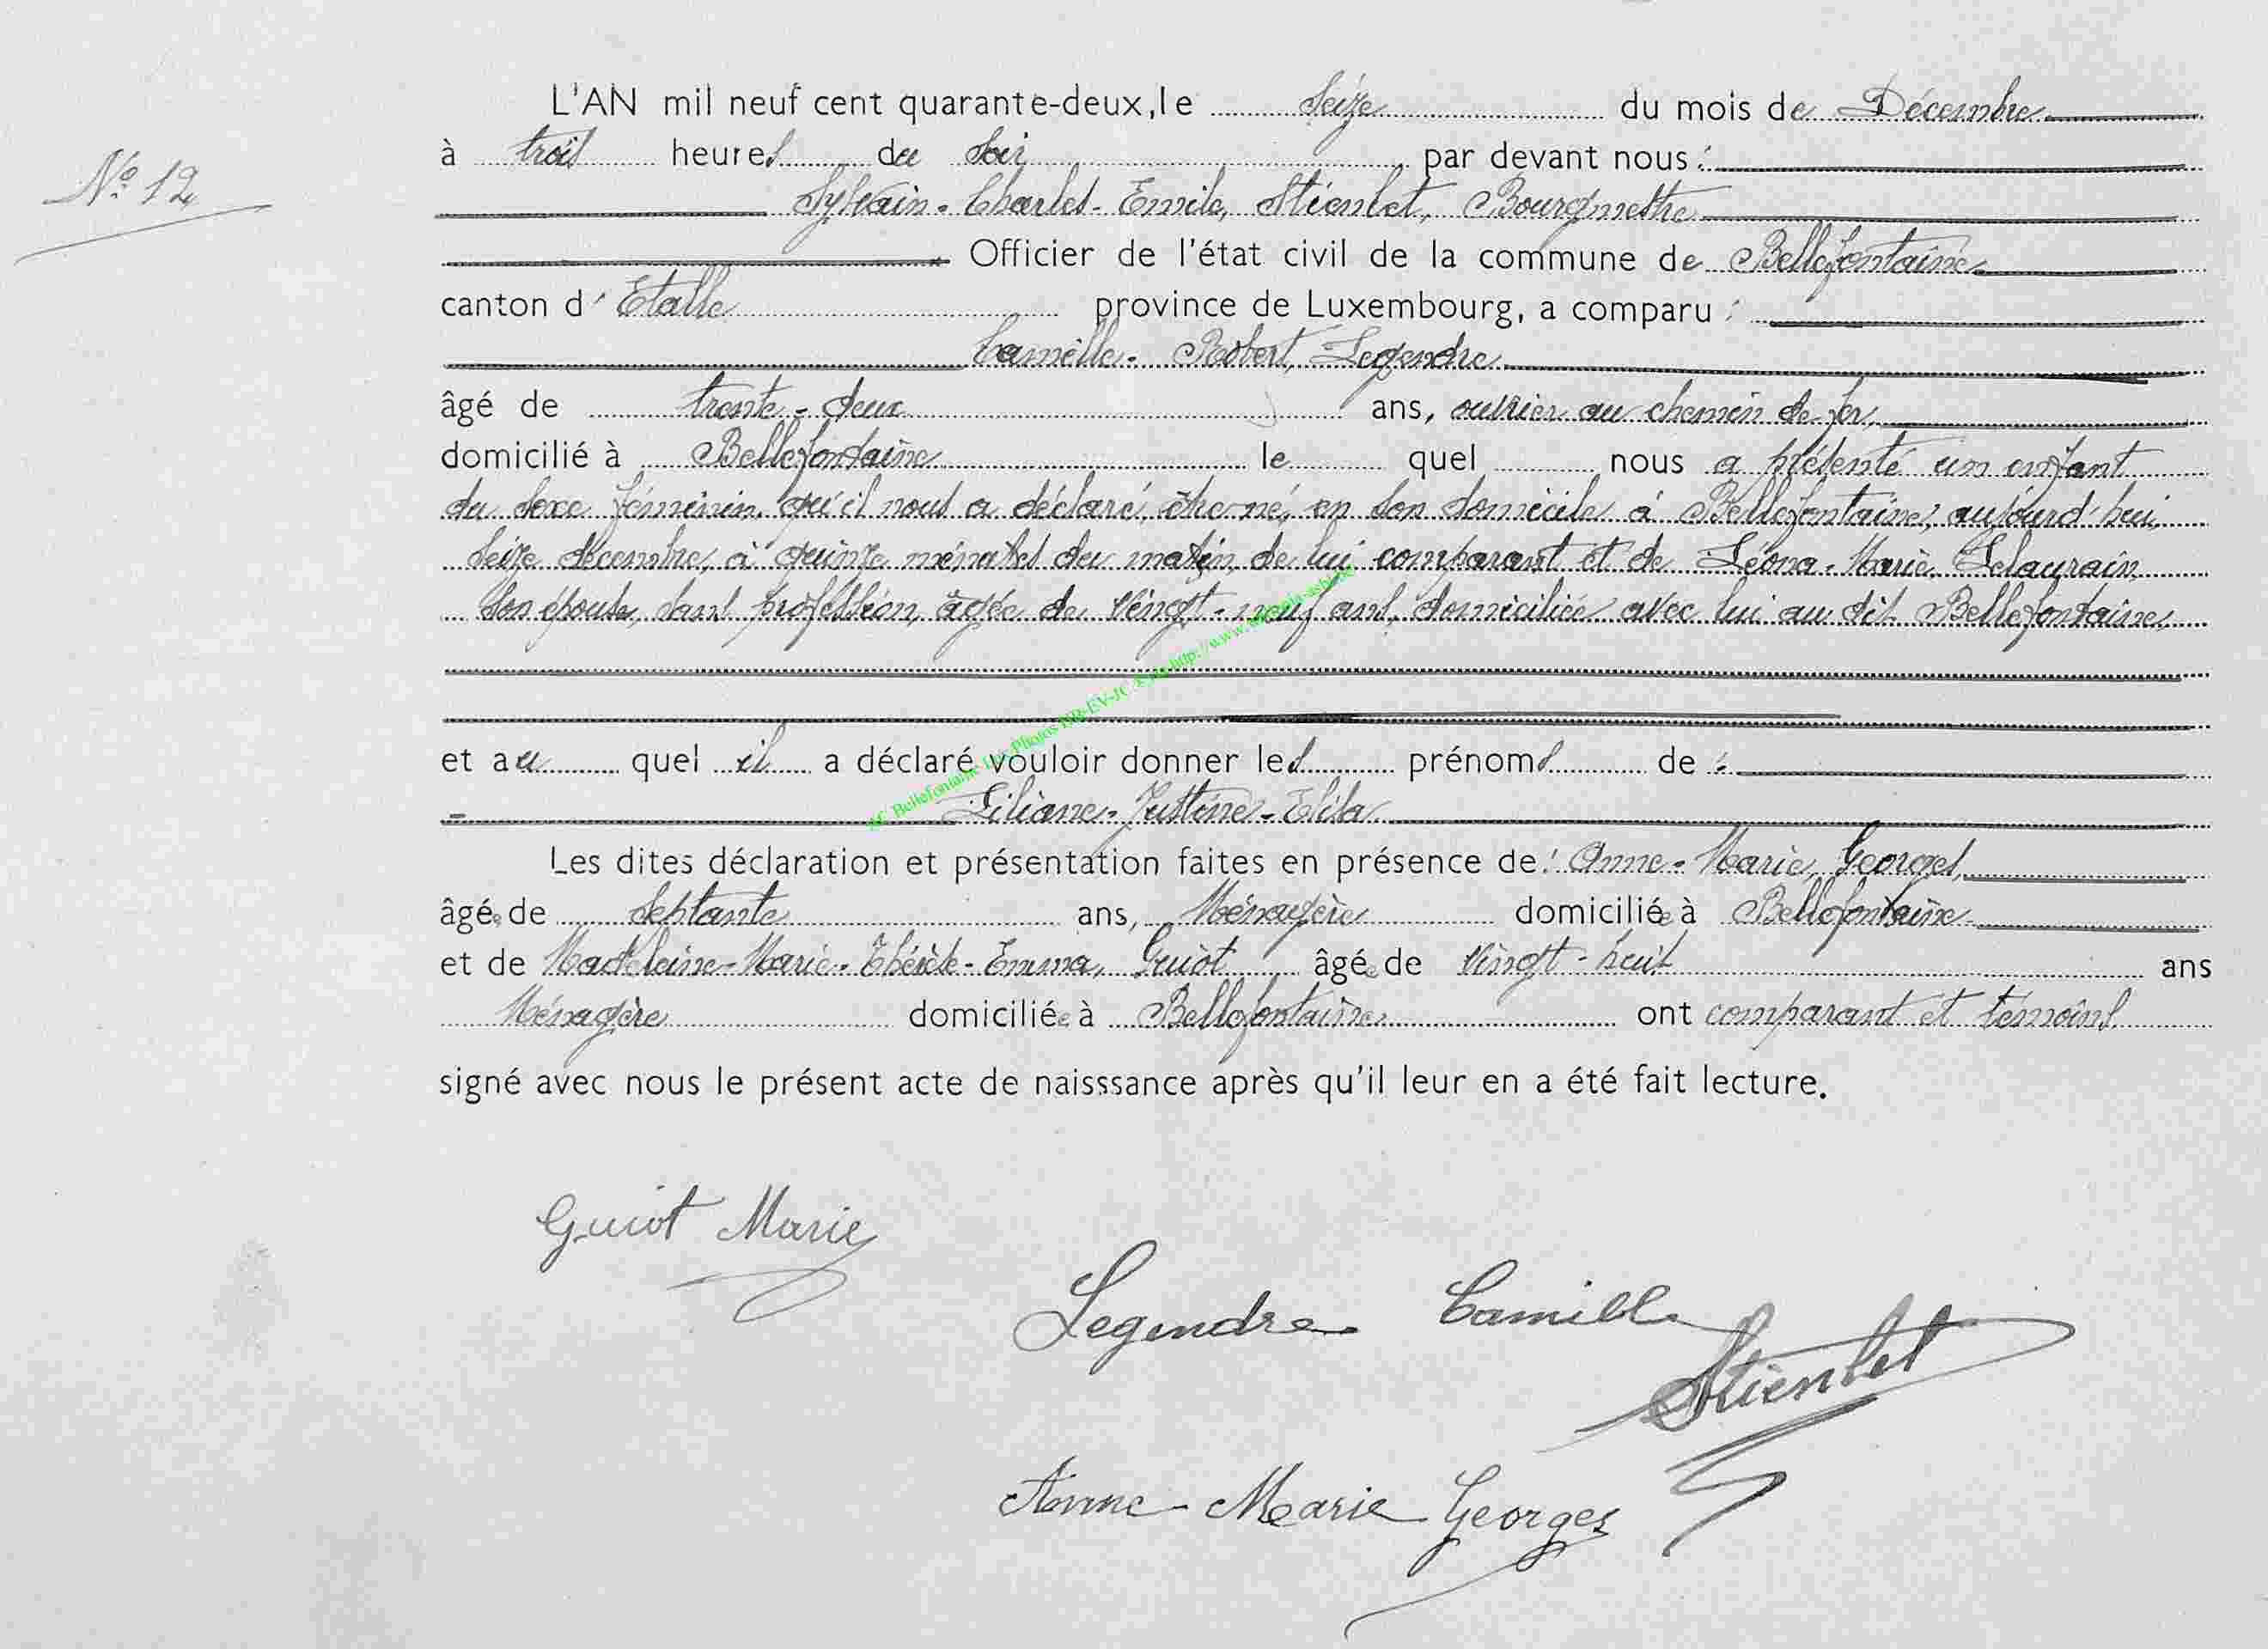 L'AN mil neuf cent quarante-deux, le Seize du mois de Décembre
à trois heures du soir par devant nous :
N° 12
Sylvain-Charles-Emile, Stiénlet, Bourgmestre
Officier de l'état civil de la commune de Bellefontaine
canton d'Etalle province de Luxembourg, a comparu :
Camille-Robert, Legendre
âgé de trente-deux ans, ouvrier au chemin de fer,
domicilié à Bellefontaine le quel nous a présenté un enfant
du sexe féminin, qu'il nous a déclaré être né, en son domicile à Bellefontaine, aujourd'hui,
seize décembre, à quinze minutes du matin, de lui comparant et de Léona-Marie, Lelaurain,
son épouse, sans profession, âgée de vingt-neuf ans, domiciliée avec lui au dit Bellefontaine,
et au quel il a déclaré vouloir donner les prénoms de :
Liliane-Justine-Elisa
Les dites déclaration et présentation faites en présence de : Anne-Marie, Georges,
âgée de septante ans, Ménagère domiciliée à Bellefontaine
et de Madeleine-Marie-Thérèse-Emma, Guiot âgée de vingt-huit ans
Ménagère domiciliée à Bellefontaine ont comparant et témoins
signé avec nous le présent acte de naisssance après qu'il leur en a été fait lecture.
Guiot Marie
Legendre Camille
Stienlet
Anne-Marie Georges